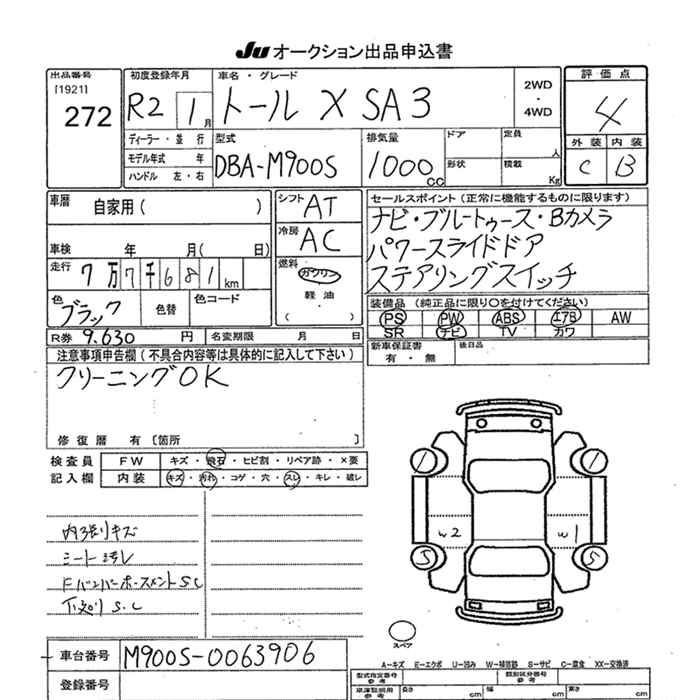 Ju オークション出品申込書
出品番号
[1921]
272
初度登録年月
R2 1月
車名・グレード
トール X SA3
2WD
・
4WD
評価点
4
外装 内装
C B
ディーラー・並行
モデル年式 年
ハンドル 左・右
型式
DBA-M900S
排気量
1000cc
ドア
形状
定員 人
積載 Kg
車歴
自家用( )
車検 年 月( 日)
走行 7万7千681km
シフト AT
冷房 AC
燃料
ガソリン
軽油
( )
セールスポイント(正常に機能するものに限ります)
ナビ・ブルートゥース・Bカメラ
パワースライドドア
ステアリングスイッチ
色 ブラック
色替
色コード
装備品(純正品に限り○を付けてください)
PS PW ABS エアB AW
SR ナビ TV カワ
R券 9,630円
名変期限 月 日
新車保証書
有・無
後日品
注意事項申告欄(不具合内容等は具体的に記入して下さい)
クリーニングOK
修復歴 有〔箇所 〕
検査員
記入欄
FW キズ・飛石・ヒビ割・リペア跡・×要
内装 キズ・汚れ・コゲ・穴・スレ・キレ・破レ
内張りキズ
シート汚レ
S.C
下廻り S.C
1 1
W2 W1
S S
スペア
A-キズ E-エクボ U-凹み W-補修跡 S-サビ C-腐食 XX-交換済
車台番号 M900S-0063906
登録番号
型式指定番号
参考
類別区分番号
参考
車庫証明用
参考
長さ cm
幅 cm
高さ cm